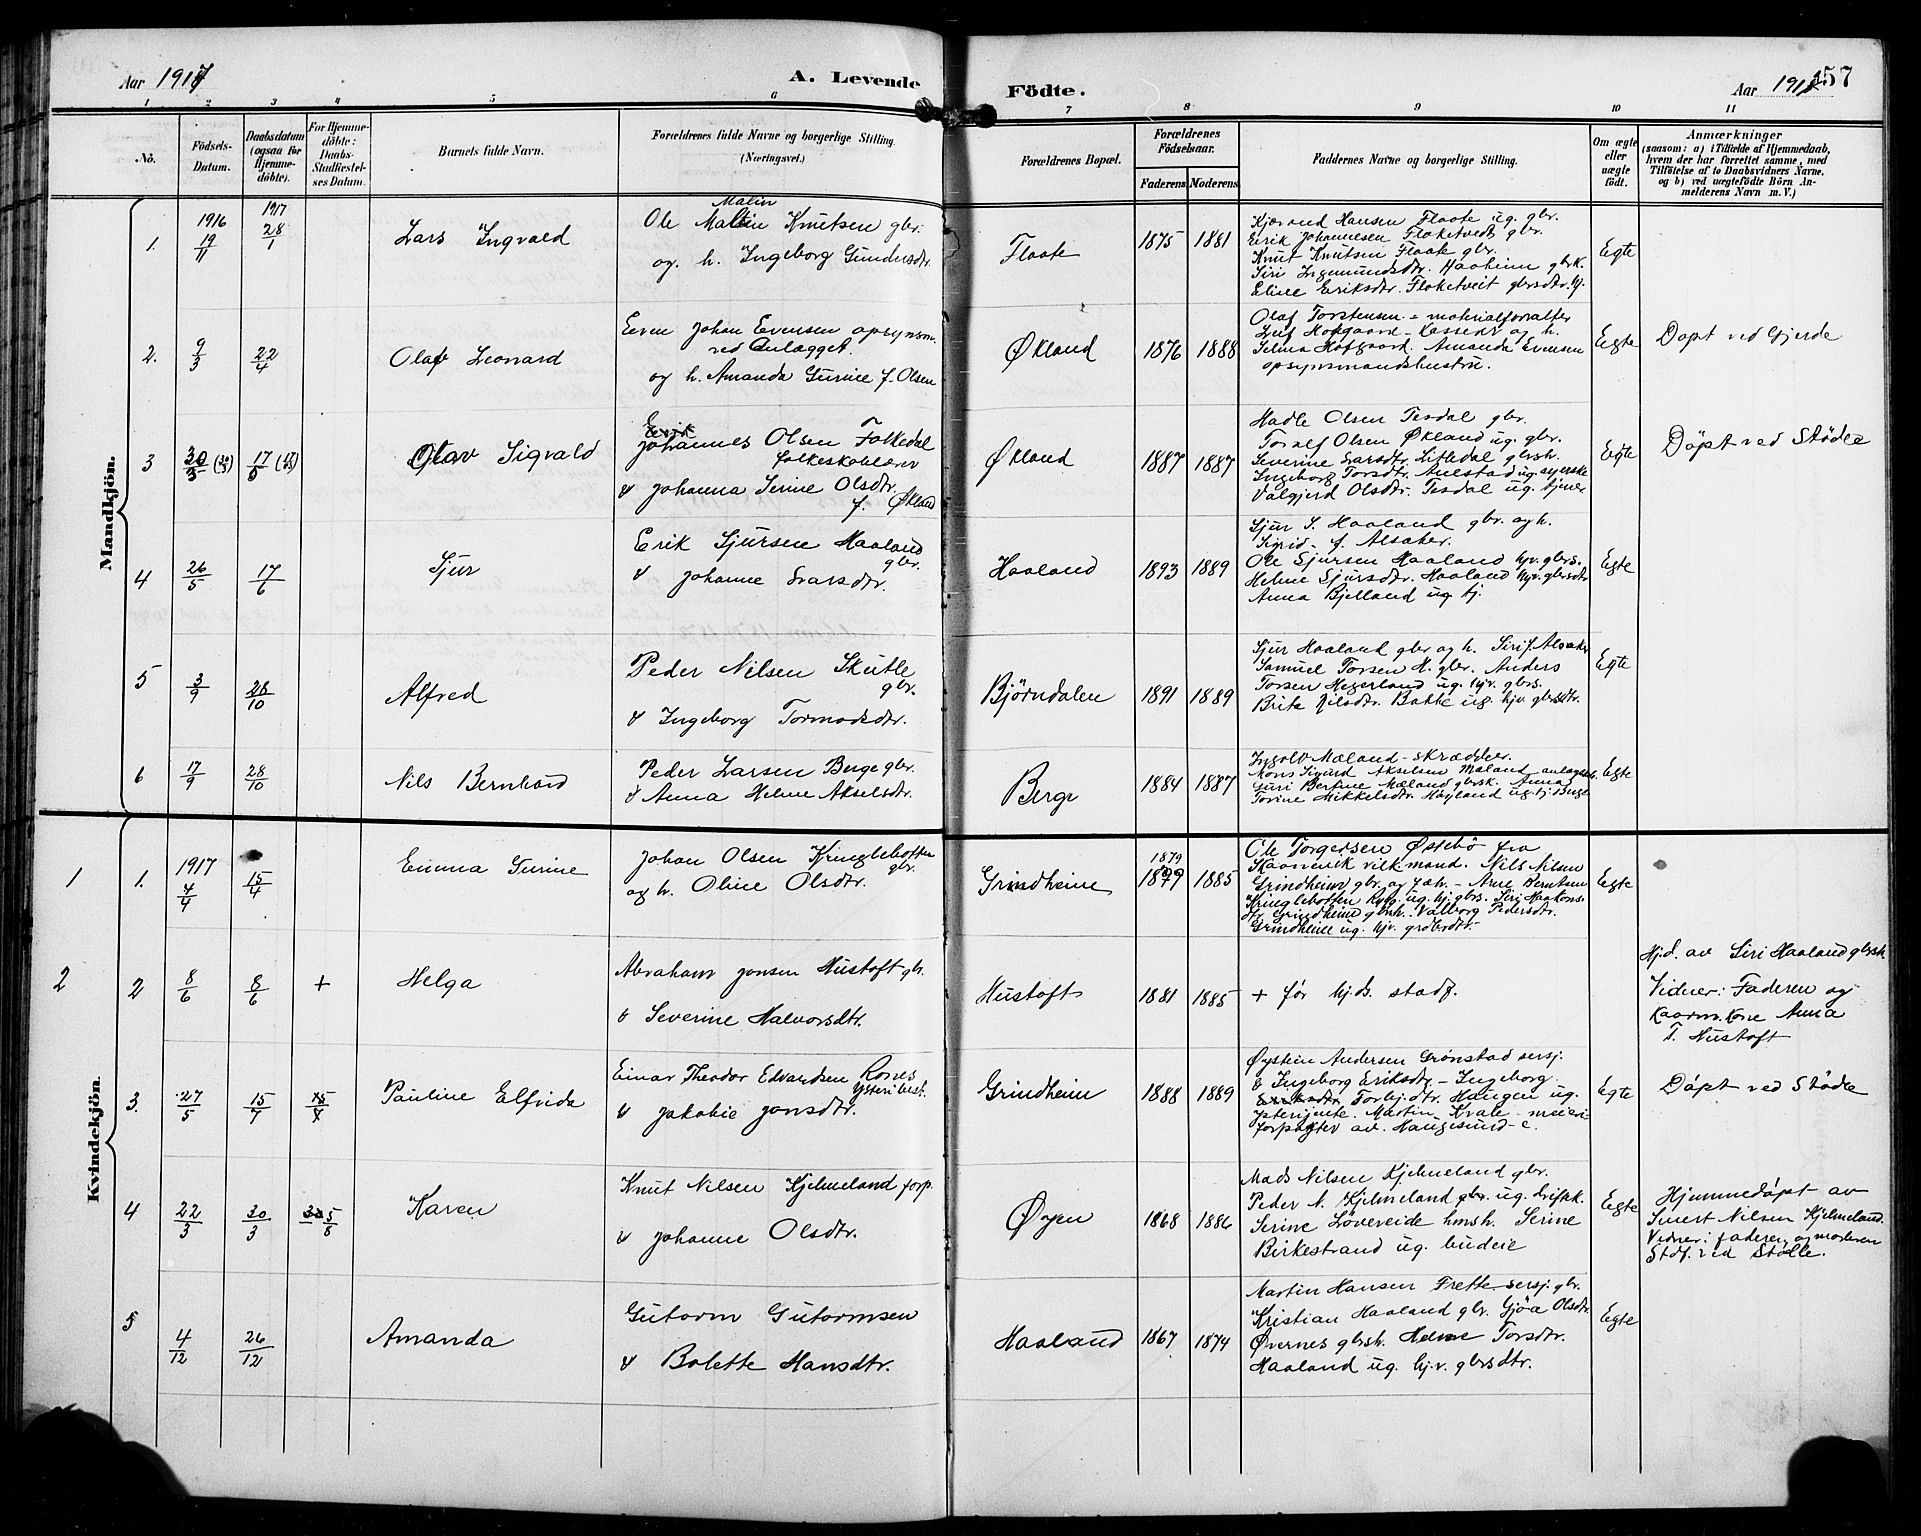 Aar 1917
A. Levende
Födte.
Aar 191
157
1 2 3 4 5 6 7 8 9 10 11
No.
Födsels-
Datum.
Daabsdatum
(ogsaa for
Hjemme-
döbte).
For Hjemme-
döbte:
Daabs-
Stadfæstel-
ses Datum.
Barnets fulde Navn.
Forældrenes fulde Navne og borgerlige Stilling.
(Næringsvei.)
Forældrenes Bopæl.
Forældrenes
Födselsaar.
Faderens Moderens
Faddernes Navne og borgerlige Stilling.
Om ægte
eller
uægte
födt.
Anmærkninger
(saasom: a) i Tilfælde af Hjemmedaab,
hvem der har forrettet samme, med
Tilföielse af to Daabsvidners Navne,
og b) ved uægtefödte Börn An-
melderens Navn m. V.)
Mandkjön.
1.
1916
19/11
1917
28/1
Lars Ingvald
Malin
Ole Malin Knutsen gbr.
og. h. Ingeborg Gundersdtr.
Flaate
1875 1881
Kjærand Hansen Flaate ug. gbr.
Eirik Johannesen Floketvedt gbr.
Knut Knutsen Flaate gbr.
Siri Ingemundsdtr. Haaheim gbrk.
Eline Eriksdtr. Floketveit gbrsdtr.
Egte
2.
9/3
22/4
Olaf Leonard
Even Johan Evensen opsynsm.
ved Anlægget.
og h. Amanda Gurine f. Olsen
Økland
1876 1888
Olaf Torstensen - materialforvalter
Leif Hofgaard - Kasseder og h.
Selma Hofgaard. Amanda Evensen
opsynsmandshustru.
Egte
Døpt ved Gjerde
3
30/3 (20/5)
17/6
Olav Sigvald
Johannes Olsen Folkedal
folkeskolelærer
& Johanna Serine Olsdtr.
f. Økland
Økland
1887 1887
Hadle Olsen Tesdal gbr.
Toralf Olsen Økland ug. gbr.
Severine Larsdtr. Litledal gbrsh.
Ingeborg Torsdtr. Aulestad ug. syerske
Valgjerd Olsdtr. Tesdal ug. tjener
Egte
Døpt ved Stødle
4
26/5
17/6
Sjur
Erik Sjursen Haaland
gbr.
& Johanne Larsdtr.
Haaland
1893 1889
Sjur S. Haaland gbr. og h.
Sigrid f. Alsaker.
Ole Sjursen Haaland hjv. gbrs.
Helene Sjursdtr. Haaland hjv. gbrsdtr
Anna Bjelland ug tj.
Egte
5
3/9
28/10
Alfred
Peder Nilsen Skutle
gbr.
& Ingeborg Tormodsdtr.
Bjørndalen
1891 1889
Sjur Haaland gbr og h. Siri f. Alsaker
Samuel Torsen H. gbr. Anders
Torsen Hegerland ug. hjv. gbrs.
Brita Nilsdtr. Bakke ug. hjv. gbrsdtr.
Egte
6
17/9
28/10
Nils Bernhard
Peder Larsen Berge gbr.
& Anna Helene Akselsdtr.
Berge
1884 1887
Ingolv Mæland - skrædder.
Mons Sigurd Akselsen Mæland
Guri Bertine Mæland gbrsk. Anna
Torine Mikkelsdtr. Høyland ug. tj. Berge
Egte
Kvindekjön.
1
1.
1917
4/4
15/4
Emma Gurine
Johan Olsen Kringlebotten
gbr.
og h. Oline Olsdtr.
Grindheim
1879
1879 1885
Ole Torgersen Østebø fra
Skaanevik vilkmand. Nils Nilsen
Grindheim gbr. og f.æ.h. - Arne Berntsen
Kringlebotten ug. hj. gbrs. Siri Haakons-
dtr. Grindheim gbrh. Valborg Pedersdtr.
Grindheim ug. hjv. grdbrdtr.
Egte
2
2
8/6
8/6
+
Helga
Abraham Jonsen Hustoft gbr.
& Severine Halvorsdtr.
Hustoft
1881 1885
+ før hj.ds. stadf.
Hj.d. av Siri Haaland gbrsh
Vidner: Faderen og
Kaarm. Kone Anna
T. Hustoft
3.
27/5
15/7
15/7
Pauline Elfrida
Einar Theodor Edvardsen Rones
ysteribest.
& Jakobie Jonsdtr.
Grindheim
1888 1889
Øystein Andersen Grønstad sersj.
& Ingeborg Eriksdtr. - Ingeborg
Torbj.dtr. Haugen ug.
Ysterijente. Martin Kvale - meieri-
forpagter av. Haugesund - e.
Egte
Døpt ved Stødle
4
22/3
30/3
5/8
Karen
Knut Nilsen Kjelmeland forp.
& Johanne Olsdtr.
Øyen
1868 1886
Mads Nilsen Kjelmeland gbr.
Peder N. Kjelmeland gbr. ug. driftsk.
Serine Løvereide hmsh. Serine
Birkestrand ug. budeie
Egte
Hjemmedøpt av
Sivert Nilsen Kjelmeland.
Vidner: faderen og moderen
Stdf. ved Stødle.
5
4/12
26/12
Amanda
Gutorm Gutormsen
& Bolette Hansdtr.
Haaland
1867 1874
Martin Hansen Frette sersj. gbr.
Kristian Haaland gbr. Gjøa Olsdtr.
Øvernes gbrsh. Helene Torsdtr.
Haaland ug. hj.v. gbrsdtr.
Egte